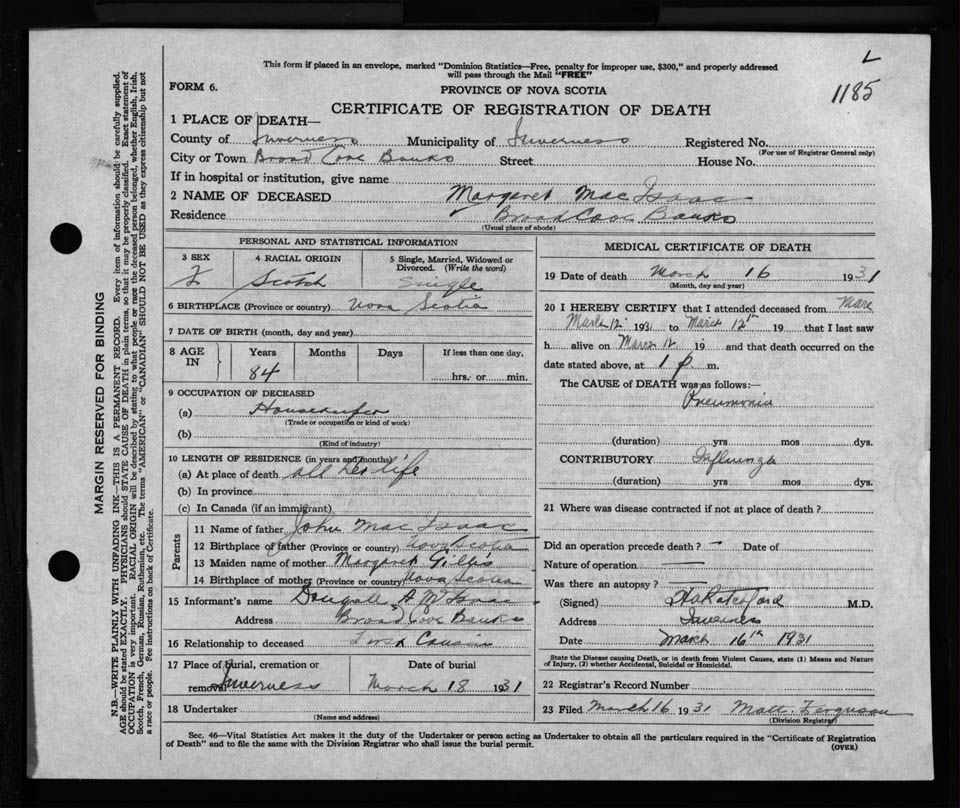 L
1185
This form if placed in an envelope, marked "Dominion Statistics—Free, penalty for improper use, $300," and properly addressed
will pass through the Mail "FREE"
FORM 6.
PROVINCE OF NOVA SCOTIA
CERTIFICATE OF REGISTRATION OF DEATH
1 PLACE OF DEATH—
County of Inverness Municipality of Inverness Registered No.
(For use of Registrar General only)
City or Town Broad Cove Banks Street House No.
If in hospital or institution, give name
2 NAME OF DECEASED Margaret MacIsaac
Residence Broad Cove Banks
(Usual place of abode)
PERSONAL AND STATISTICAL INFORMATION
3 SEX 4 RACIAL ORIGIN 5 Single, Married, Widowed or
Divorced. (Write the word)
F Scotch Single
6 BIRTHPLACE (Province or country) Nova Scotia
7 DATE OF BIRTH (month, day and year)
8 AGE IN Years Months Days If less than one day,
84 hrs. or min.
9 OCCUPATION OF DECEASED
(a) Housekeeper
(Trade or occupation or kind of work)
(b)
(Kind of industry)
10 LENGTH OF RESIDENCE (in years and months)
(a) At place of death all her life
(b) In province
(c) In Canada (if an immigrant)
Parents
11 Name of father John MacIsaac
12 Birthplace of father (Province or country) Nova Scotia
13 Maiden name of mother Margaret Gillis
14 Birthplace of mother (Province or country) Nova Scotia
15 Informant's name Dougall A. McIsaac
Address Broad Cove Banks
16 Relationship to deceased First Cousin
17 Place of burial, cremation or Date of burial
removal Inverness March 18 1931
18 Undertaker
(Name and address)
MEDICAL CERTIFICATE OF DEATH
19 Date of death March 16 1931
(Month, day and year)
20 I HEREBY CERTIFY that I attended deceased from
March 12 1931 to March 12th 19 that I last saw
h alive on March 12 19 and that death occurred on the
date stated above, at 1 p. m.
The CAUSE of DEATH was as follows:—
Pneumonia
(duration) yrs mos dys.
CONTRIBUTORY Influenza
(duration) yrs mos dys.
21 Where was disease contracted if not at place of death?
Did an operation precede death? — Date of
Nature of operation —
Was there an autopsy? —
(Signed) M.D.
Address Inverness
Date March 16th 1931
State the Disease causing Death, or in death from Violent Causes, state (1) Means and Nature
of Injury, (2) whether Accidental, Suicidal or Homicidal.
22 Registrar's Record Number
23 Filed March 16 1931 Matt. Ferguson
(Division Registrar)
Sec. 46—Vital Statistics Act makes it the duty of the Undertaker or person acting as Undertaker to obtain all the particulars required in the "Certificate of Registration
of Death" and to file the same with the Division Registrar who shall issue the burial permit. (OVER)
MARGIN RESERVED FOR BINDING
N.B.—WRITE PLAINLY WITH UNFADING INK—THIS IS A PERMANENT RECORD. Every item of information should be carefully supplied.
AGE should be stated EXACTLY. PHYSICIANS should STATE CAUSE OF DEATH in plain terms, so that it may be properly classified. Exact statement of
OCCUPATION is very important. RACIAL ORIGIN will be described by stating to what people or race the deceased person belonged, whether English, Irish,
Scotch, French, German, Russian, Ruthenian, etc. The terms "AMERICAN" or "CANADIAN" SHOULD NOT BE USED as they express citizenship but not
a race or people. See instructions on back of Certificate.